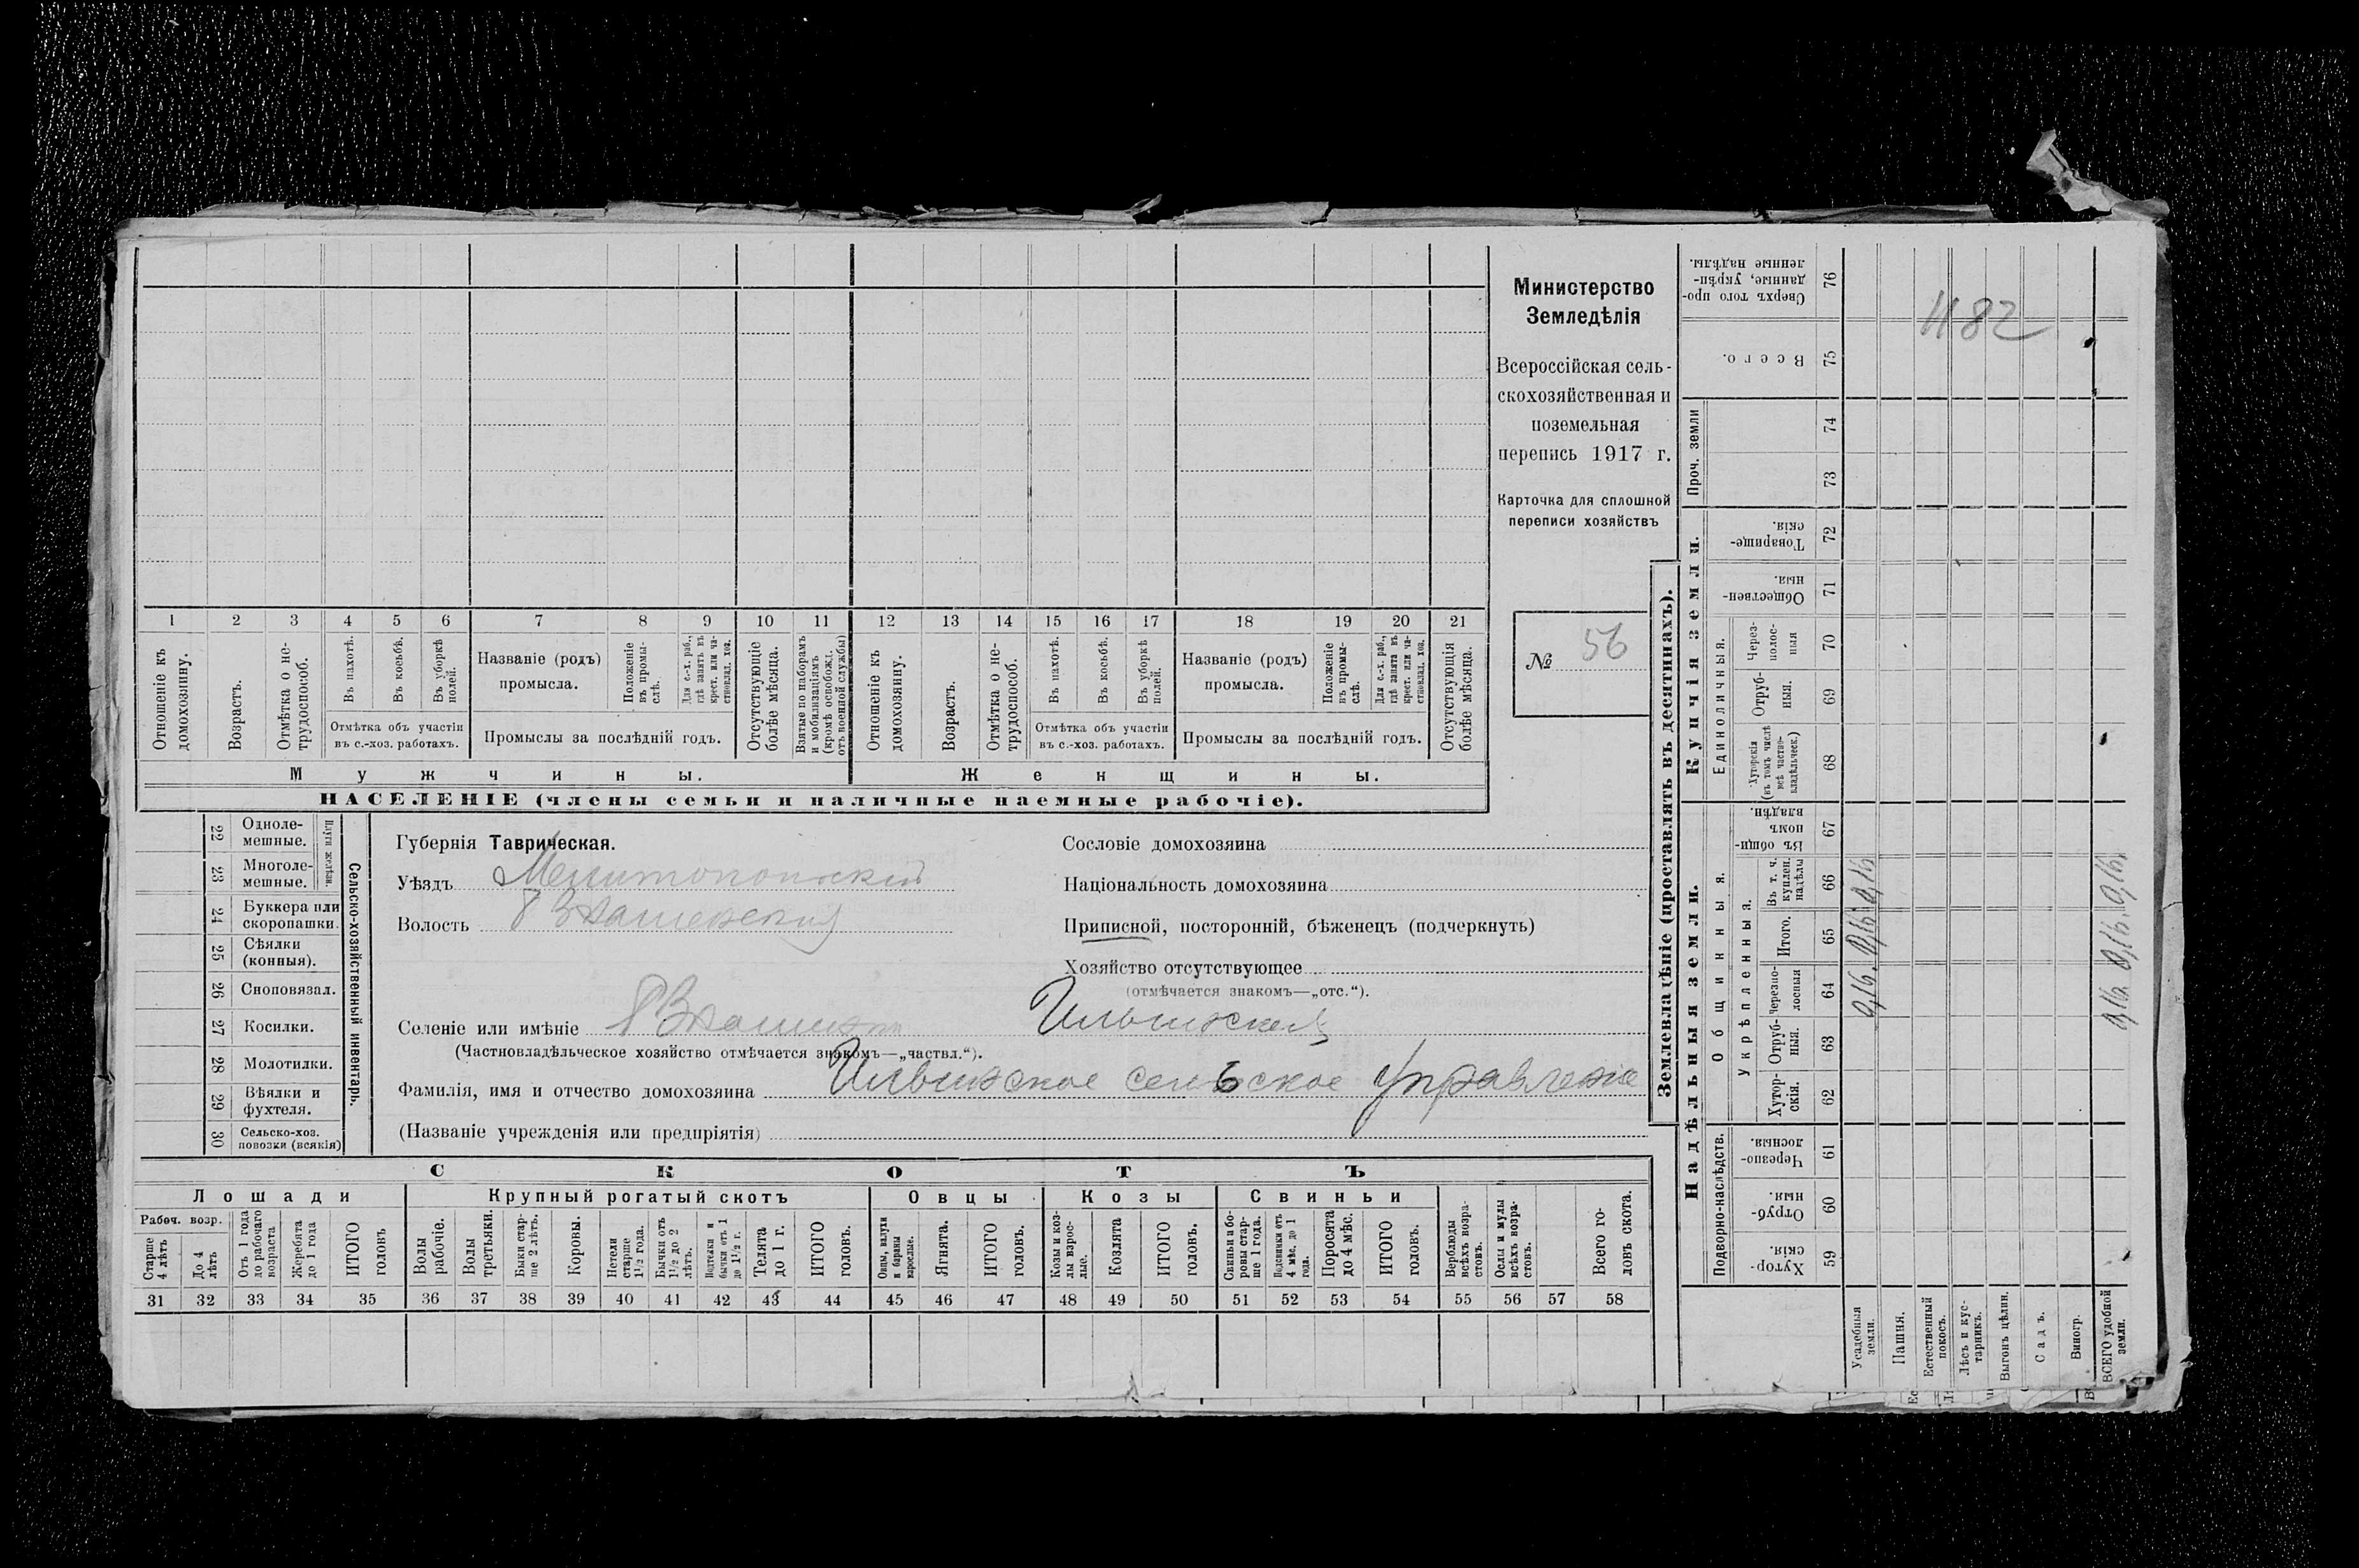 1 2 3 4 5 6 7 8 9 10 11 12 13 14 15 16 17 18 19 20 21
Отношеніе къ домохозяину.
Возрастъ.
Отмѣтка о не-
трудоспособ.
Въ пахотѣ.
Въ косьбѣ.
Въ уборкѣ полей.
Отмѣтка объ участіи
въ с.-хоз. работахъ.
Названіе (родъ)
промысла.
Положеніе въ промы-
слѣ.
Для с.-х. раб., гдѣ занятъ въ крест. или ча-
ствовлад. хоз.
Промыслы за послѣдній годъ.
Отсутствующіе болѣе мѣсяца.
Взятые по наборамъ и мобилизаціямъ (кромѣ освобожд. отъ военной службы)
Отношеніе къ домохозяину.
Возрастъ.
Отмѣтка о не-
трудоспособ.
Въ пахотѣ.
Въ косьбѣ.
Въ уборкѣ полей.
Отмѣтка объ участіи
въ с.-хоз. работахъ.
Названіе (родъ)
промысла.
Положеніе въ промы-
слѣ.
Для с.-х. раб., гдѣ занята въ крест. или ча-
стновлад. хоз.
Промыслы за послѣдній годъ.
Отсутствующія болѣе мѣсяца.
Мужчины.
Женщины.
НАСЕЛЕНІЕ (члены семьи и наличные наемные рабочіе).
Министерство
Земледѣлія
Всероссійская сель-
скохозяйственная и
поземельная
перепись 1917 г.
Карточка для сплошной
переписи хозяйствъ
№ 56
22 Одноле-
мешные.
23 Многоле-
мешные.
Плуги желѣзн.
24 Буккера или
скоропашки.
25 Сѣялки
(конныя).
26 Сноповязал.
27 Косилки.
28 Молотилки.
29 Вѣялки и
фухтеля.
30 Сельско-хоз.
повозки (всякія)
Сельско-хозяйственный инвентарь.
Губернія Таврическая.
Уѣздъ Мелитопольскій
Волость
Селеніе или имѣніе
(Частновладѣльческое хозяйство отмѣчается знакомъ—„частвл.“).
Фамилія, имя и отчество домохозяина сельское Управленіе
(Названіе учрежденія или предпріятія)
Сословіе домохозяина
Національность домохозяина
Приписной, посторонній, бѣженецъ (подчеркнуть)
Хозяйство отсутствующее
(отмѣчается знакомъ—„отс.“).
СКОТЪ
Лошади
Крупный рогатый скотъ
Овцы
Козы
Свиньи
Рабоч. возр.
Старше 4 лѣтъ
До 4 лѣтъ
Отъ 1 года до рабочаго возраста
Жеребята до 1 года
ИТОГО головъ
Волы рабочіе.
Волы третьяки.
Быки стар-
ше 2 лѣтъ.
Коровы.
Нетели старше 1½ года.
Бычки отъ 1½ до 2 лѣтъ.
Подтелки и бычки отъ 1 до 1½ г.
Телята до 1 г.
ИТОГО головъ.
Овцы, валухи и бараны взрослые.
Ягнята.
ИТОГО головъ.
Козы и коз-
лы взрос-
лые.
Козлята
ИТОГО головъ.
Свиньи а бо-
ровы стар-
ше 1 года.
Подсвинки отъ 4 мѣс. до 1 года.
Поросята до 4 мѣс.
ИТОГО головъ.
Верблюды всѣхъ возра-
стовъ.
Ослы и мулы всѣхъ возра-
стовъ.
Всего го-
ловъ скота.
31 32 33 34 35 36 37 38 39 40 41 42 43 44 45 46 47 48 49 50 51 52 53 54 55 56 57 58
Землевладѣніе (проставлять въ десятинахъ).
Купчія земли.
Надѣльныя земли.
Сверхъ того про-
данные, укрѣп-
ленные надѣлы. 76
Всего. 75
Проч. земли 74 73
Товарище-
скія. 72
Обществен-
ныя. 71
Единоличныя.
Через-
полос-
ныя 70
Отруб-
ныя. 69
Хуторскія (въ томъ числѣ всѣ частно-
владѣльческ.) 68
Общинныя.
Въ общи-
номъ
владѣн. 67
Укрѣпленныя.
Въ т. ч. куплен. надѣлы 66
Итого. 65
Черезпо-
лосныя 64
Отруб-
ныя. 63
Хутор-
скія. 62
Подворно-наслѣдств.
Черезпо-
лосныя. 61
Отруб-
ныя. 60
Хутор-
скія. 59
Усадебныя земли.
Пашня.
Естественный покосъ.
Лѣсъ и кус-
тарникъ.
Выгонъ цѣлин.
Садъ.
Виногр.
ВСЕГО удобной земли.
1182
0,16. 0,16 0,16
0,16. 0,16. 0,16.